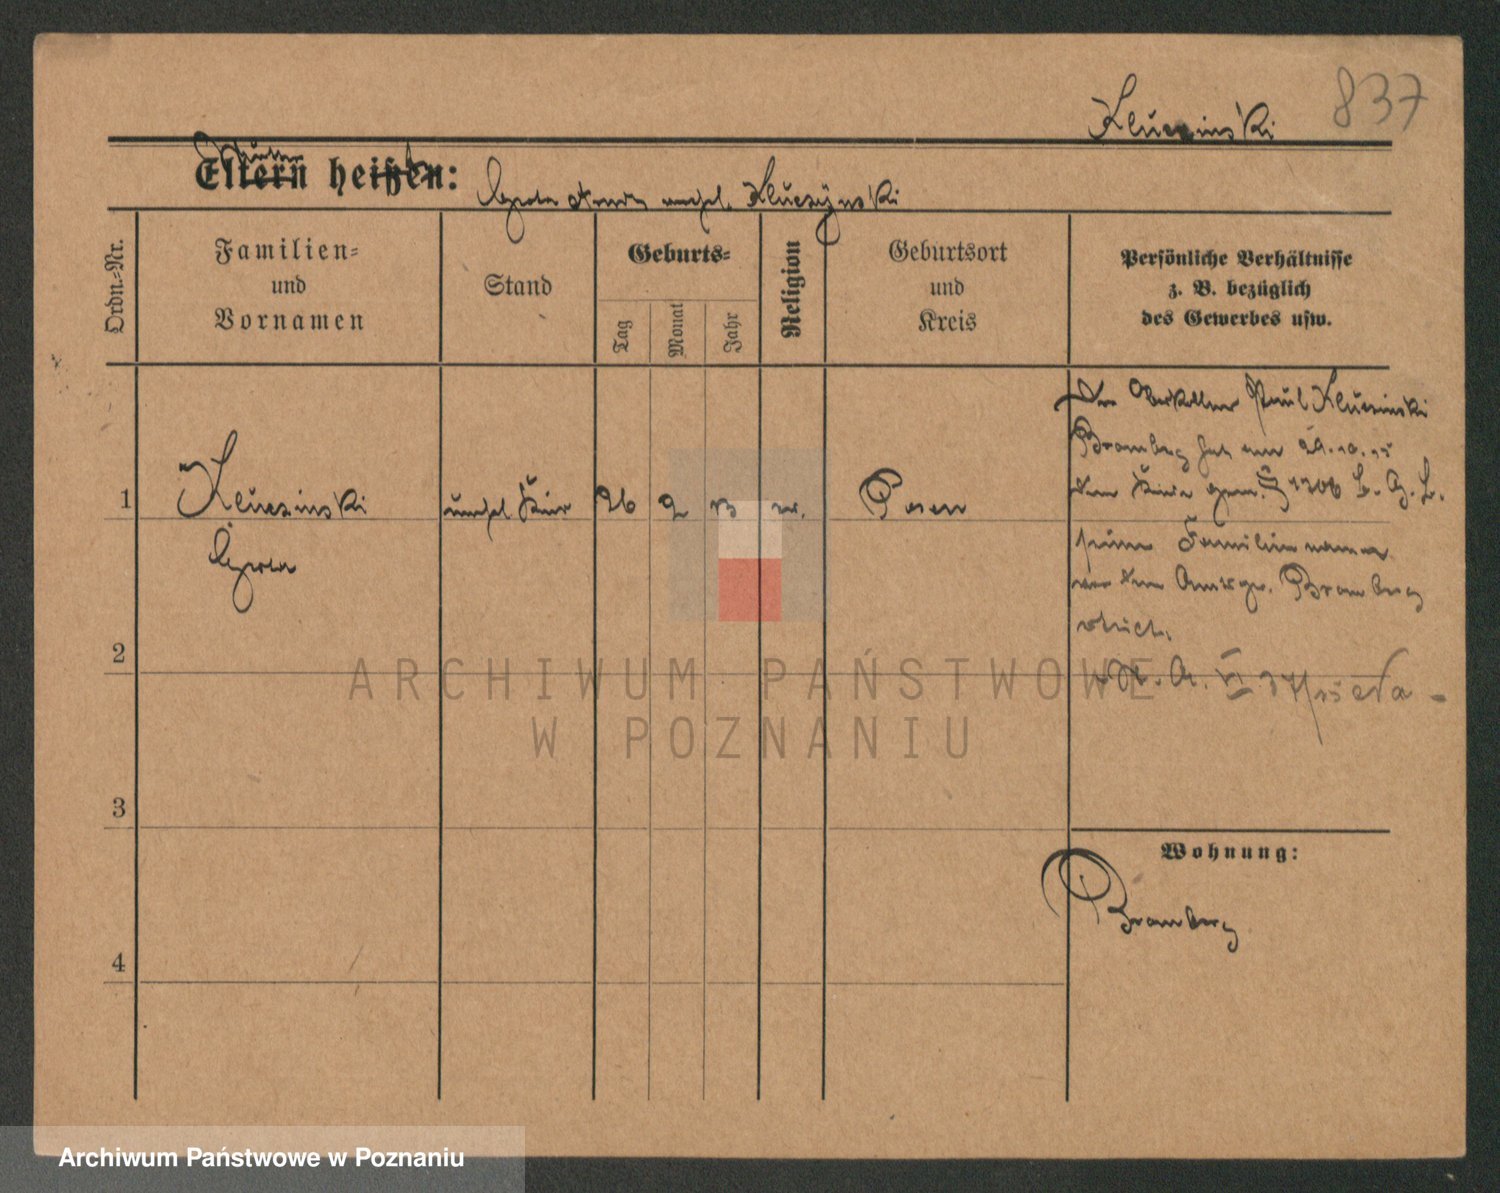 837
Kluczinski
Eltern heißen:
Kluczynski
Ordn.=Nr.
Familien=
und
Vornamen
Stand
Geburts=
Tag
Monat
Jahr
Religion
Geburtsort
und
Kreis
Persönliche Verhältnisse
z. B. bezüglich
des Gewerbes usw.
Der Oberkellner Paul Kluczinski
Bromberg hat am 29.10.15
dem Kinde gem. § 1706 B. G. B.
seinen Familiennamen
vor dem Amtsger. Bromberg
erteilt.
1
Kluczinski
unehel Kind
26
2
13
Posen
2
3
4
Wohnung:
Bromberg
ARCHIWUM PAŃSTWOWE
W POZNANIU
Archiwum Państwowe w Poznaniu